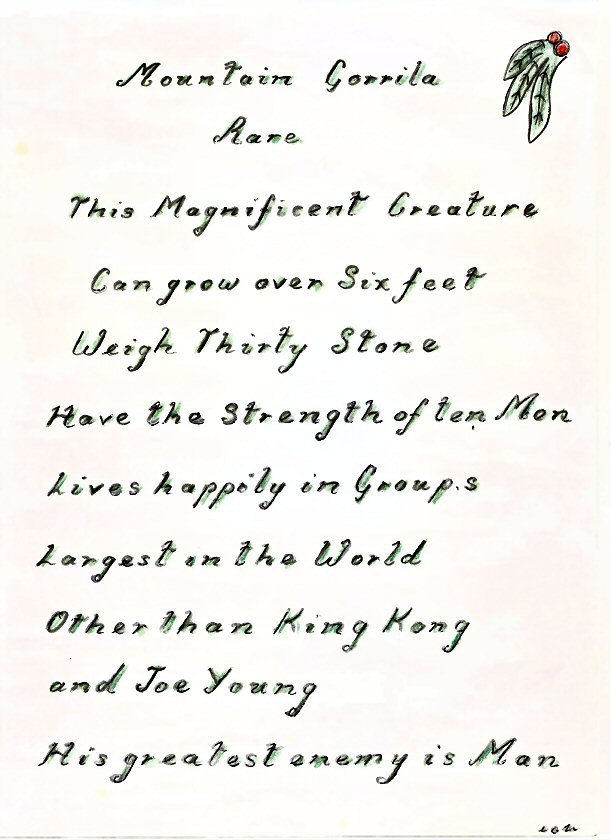 Mountain Gorrila
Rare
This Magnificent Creature
Can grow over Six feet
Weigh Thirty Stone
Have the Strength of ten Men
Lives happily in Group.s
Largest in the World
Other than King Kong
and Joe Young
His greatest enemy is Man